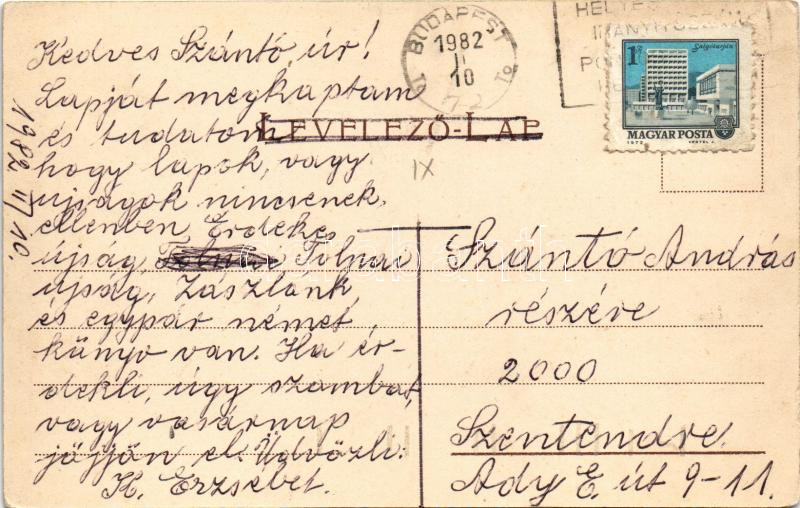 Kedves Szántó úr!
Lapját megkaptam
és tudatom,
hogy lapok, vagy
ujságok nincsenek,
ellenben Érdekes
újság, Tolnai Tolnai
ujság, Zászlónk
és egypár német
könyv van. Ha ér-
dekli, úgy szombat,
vagy vasárnap
jöjjön el. Üdvözli:
K. Erzsébet.
1982 II/10.
LEVELEZŐ-LAP
IX
BUDAPEST
1982
II
10
72
HELYES
Salgótarján
1 Ft
MAGYAR POSTA
1972
Szántó András
részére
2000
Szentendre
Ady E. út 9-11.